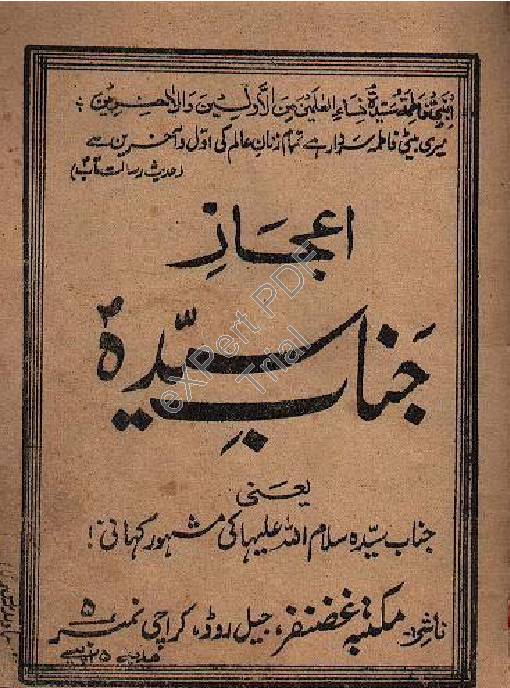 ابنتی فاطمة سیدة نساء العلمین من الأولین والاٰخرین
میری بیٹی فاطمہ سردار ہے تمام زنانِ عالم کی اوّل و آخرین سے
(حدیث رسالت مآب)
اعجازِ
جنابِ سیّدہؑ
یعنی
جناب سیّدہ سلام اللہ علیہا کی مشہور کہانی!
ناشر: مکتبۂ غضنفر، جیل روڈ، کراچی نمبر ۵
ھدیہ ۲۵ پیسے
eXPert PDF
Trial